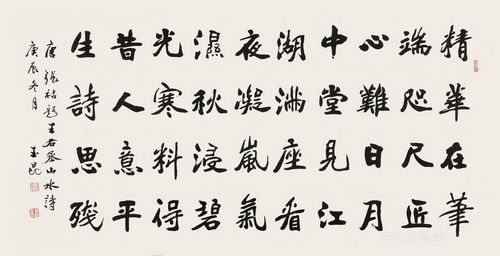 精華在筆
端咫尺匠
心難日月
中堂見江
湖滿座看
夜凝嵐氣
濕秋浸碧
光寒料得
昔人意平
生詩思殘
唐張祜題王右丞山水詩
庚辰冬月 玉昆